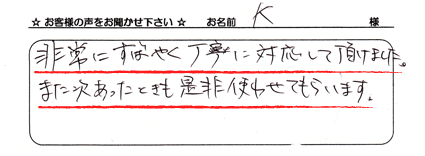 ☆ お客様の声をお聞かせ下さい ☆ お名前 K 様
非常にすばやく丁寧に対応して頂けました。
また次あったときも是非使わせてもらいます。